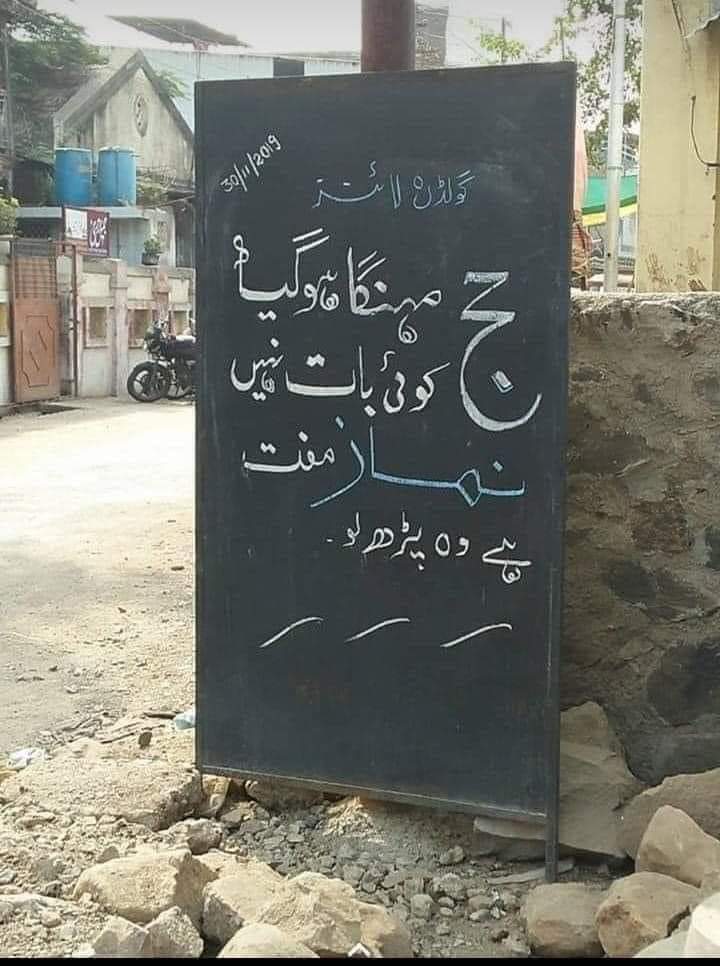 30/11/2019
گولڈن لائنز
حج مہنگا ہوگیا
کوئی بات نہیں
نماز مفت
ہے وہ پڑھ لو۔